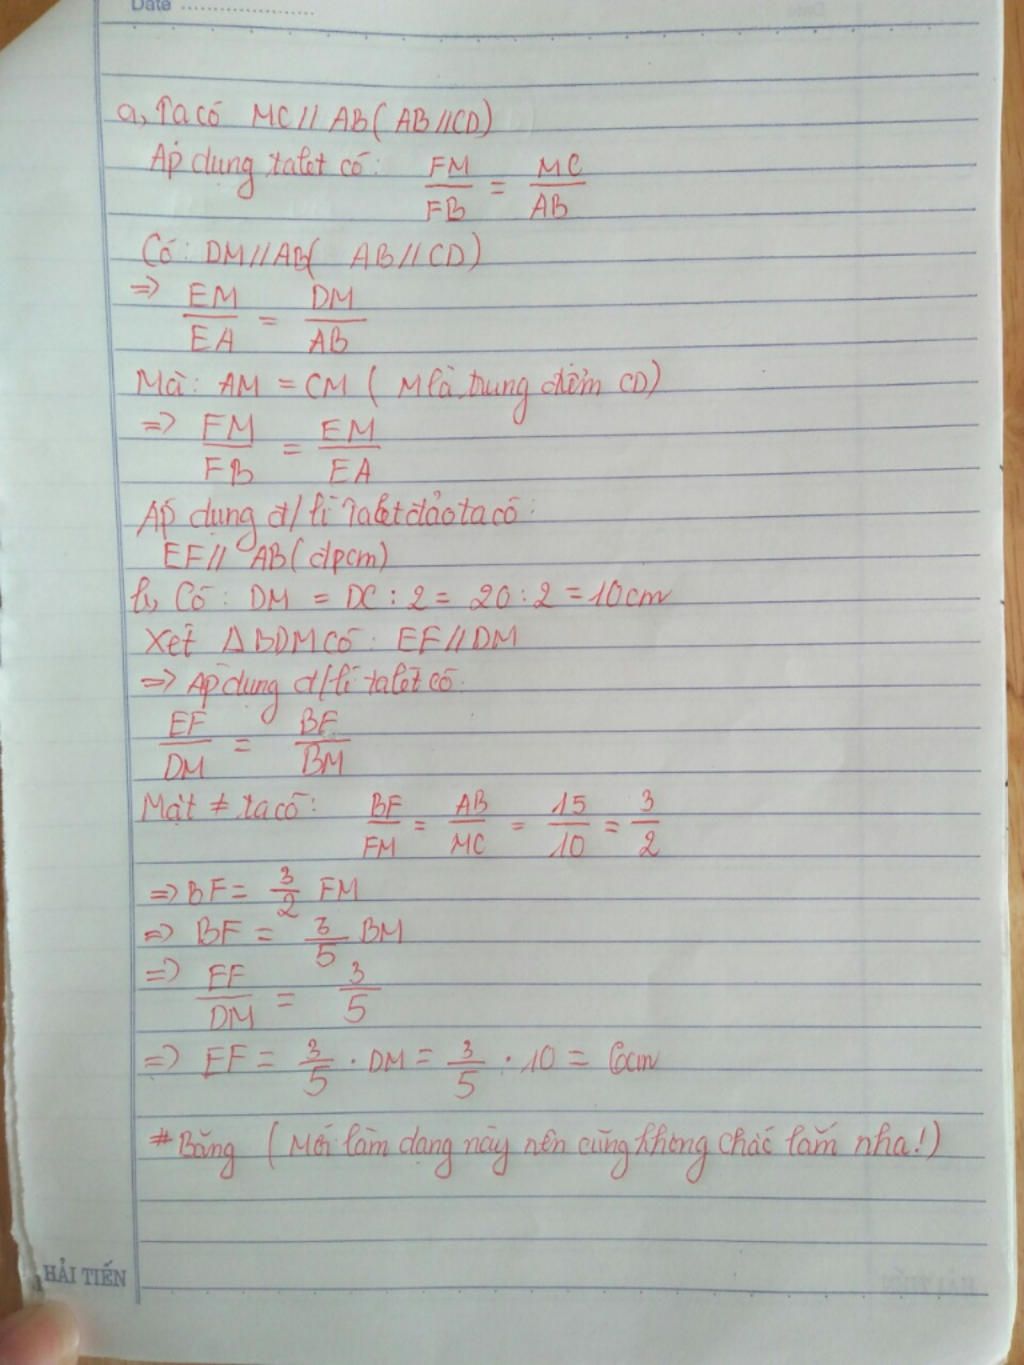 Date
a, Ta có MC // AB ( AB // CD )
Áp dụng talet có: FM/FB = MC/AB
Có: DM // AB ( AB // CD )
=> EM/EA = DM/AB
Mà: AM = CM ( M là trung điểm CD )
=> FM/FB = EM/EA
Áp dụng đ/lí Talet đảo ta có:
EF // AB ( đpcm )
b, Có: DM = DC : 2 = 20 : 2 = 10cm
Xét Δ BDM có: EF // DM
=> Áp dụng đ/lí talet có:
EF/DM = BF/BM
Mặt ≠ ta có: BF/FM = AB/MC = 15/10 = 3/2
=> BF = 3/2 FM
=> BF = 3/5 BM
=> EF/DM = 3/5
=> EF = 3/5 . DM = 3/5 . 10 = 6cm
# Băng ( Mới làm dạng này nên cũng không chắc lắm nha! )
HẢI TIẾN